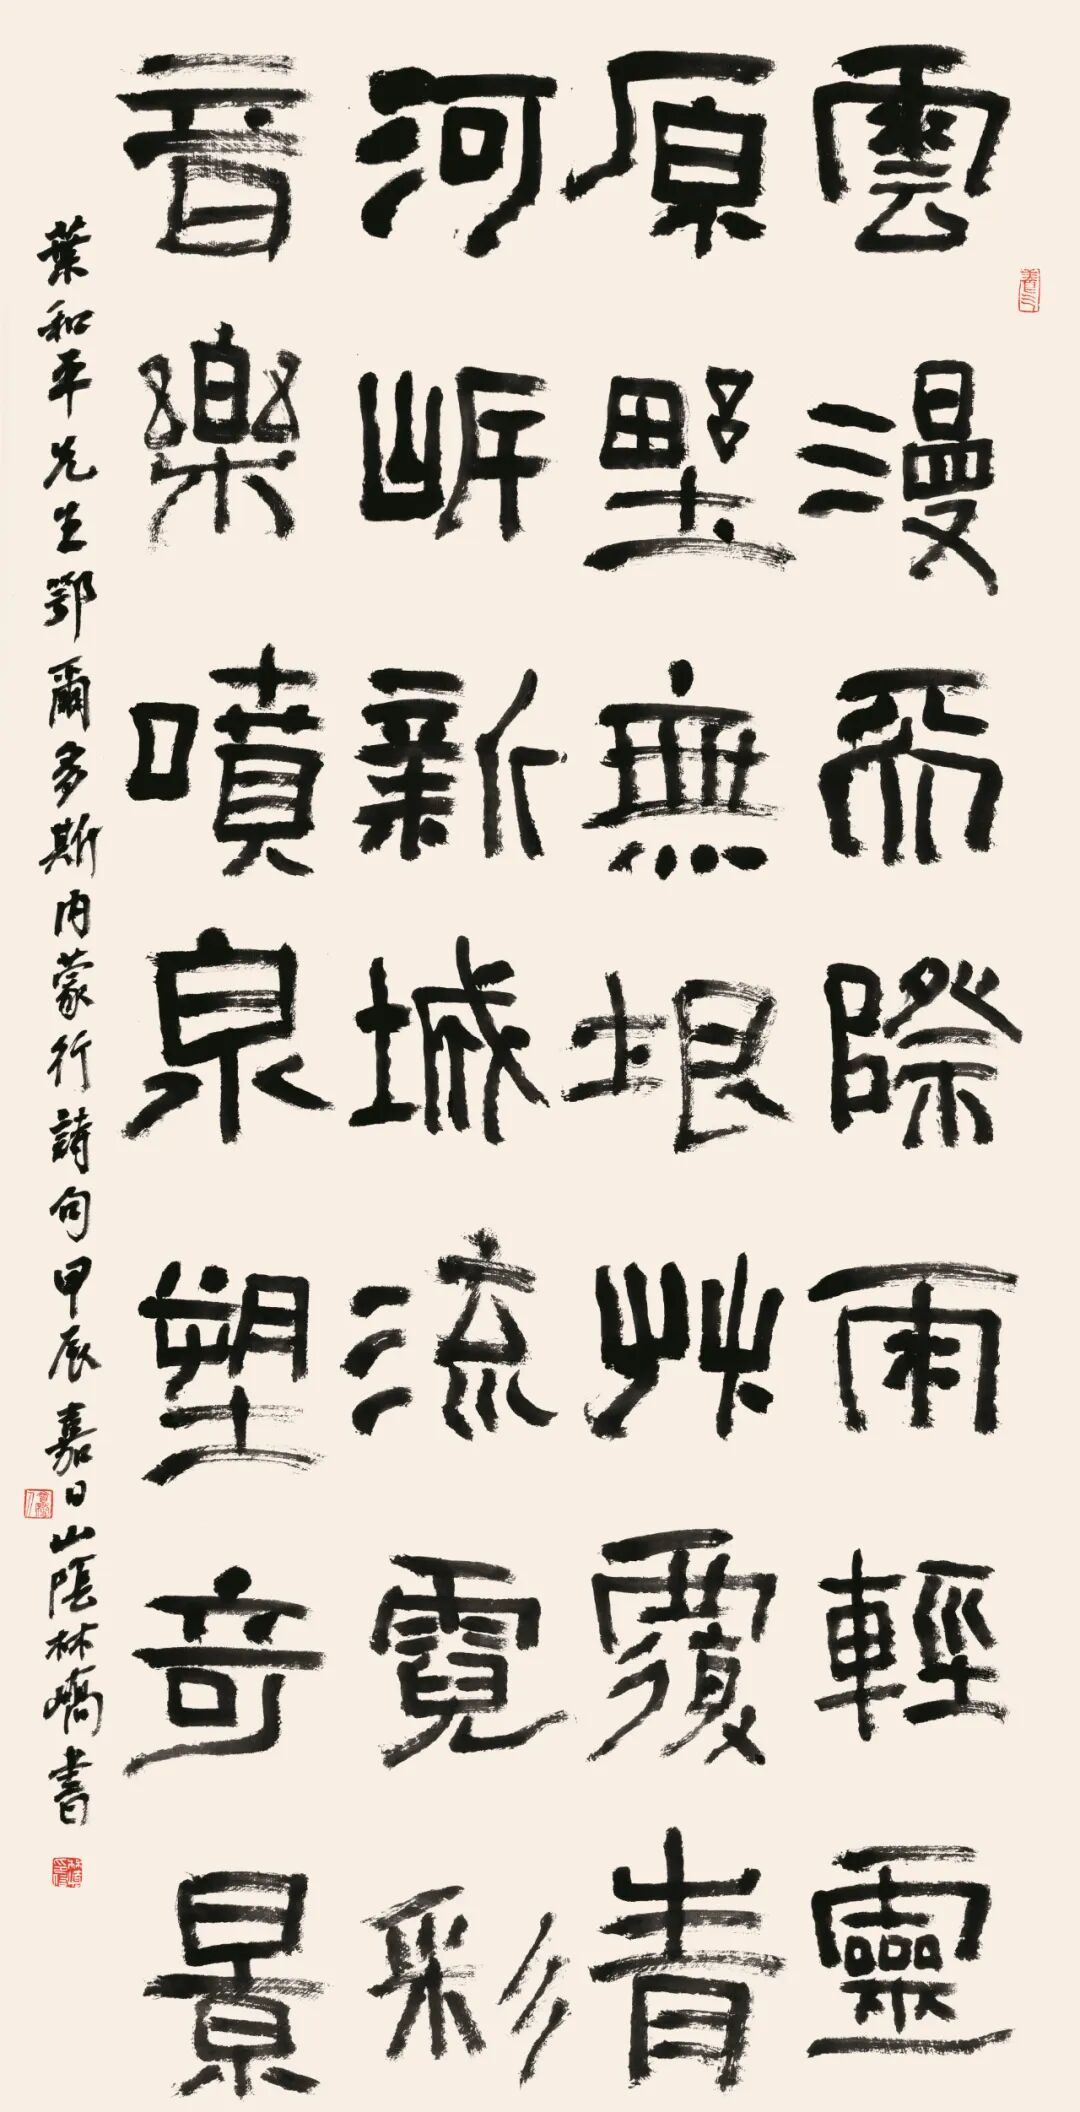 雲漫天際雨輕靈
原野無垠艸覆青
河岸新城流霓彩
音樂噴泉塑奇景
葉和平先生鄂爾多斯內蒙行詩句甲辰嘉日山陰林嶠書